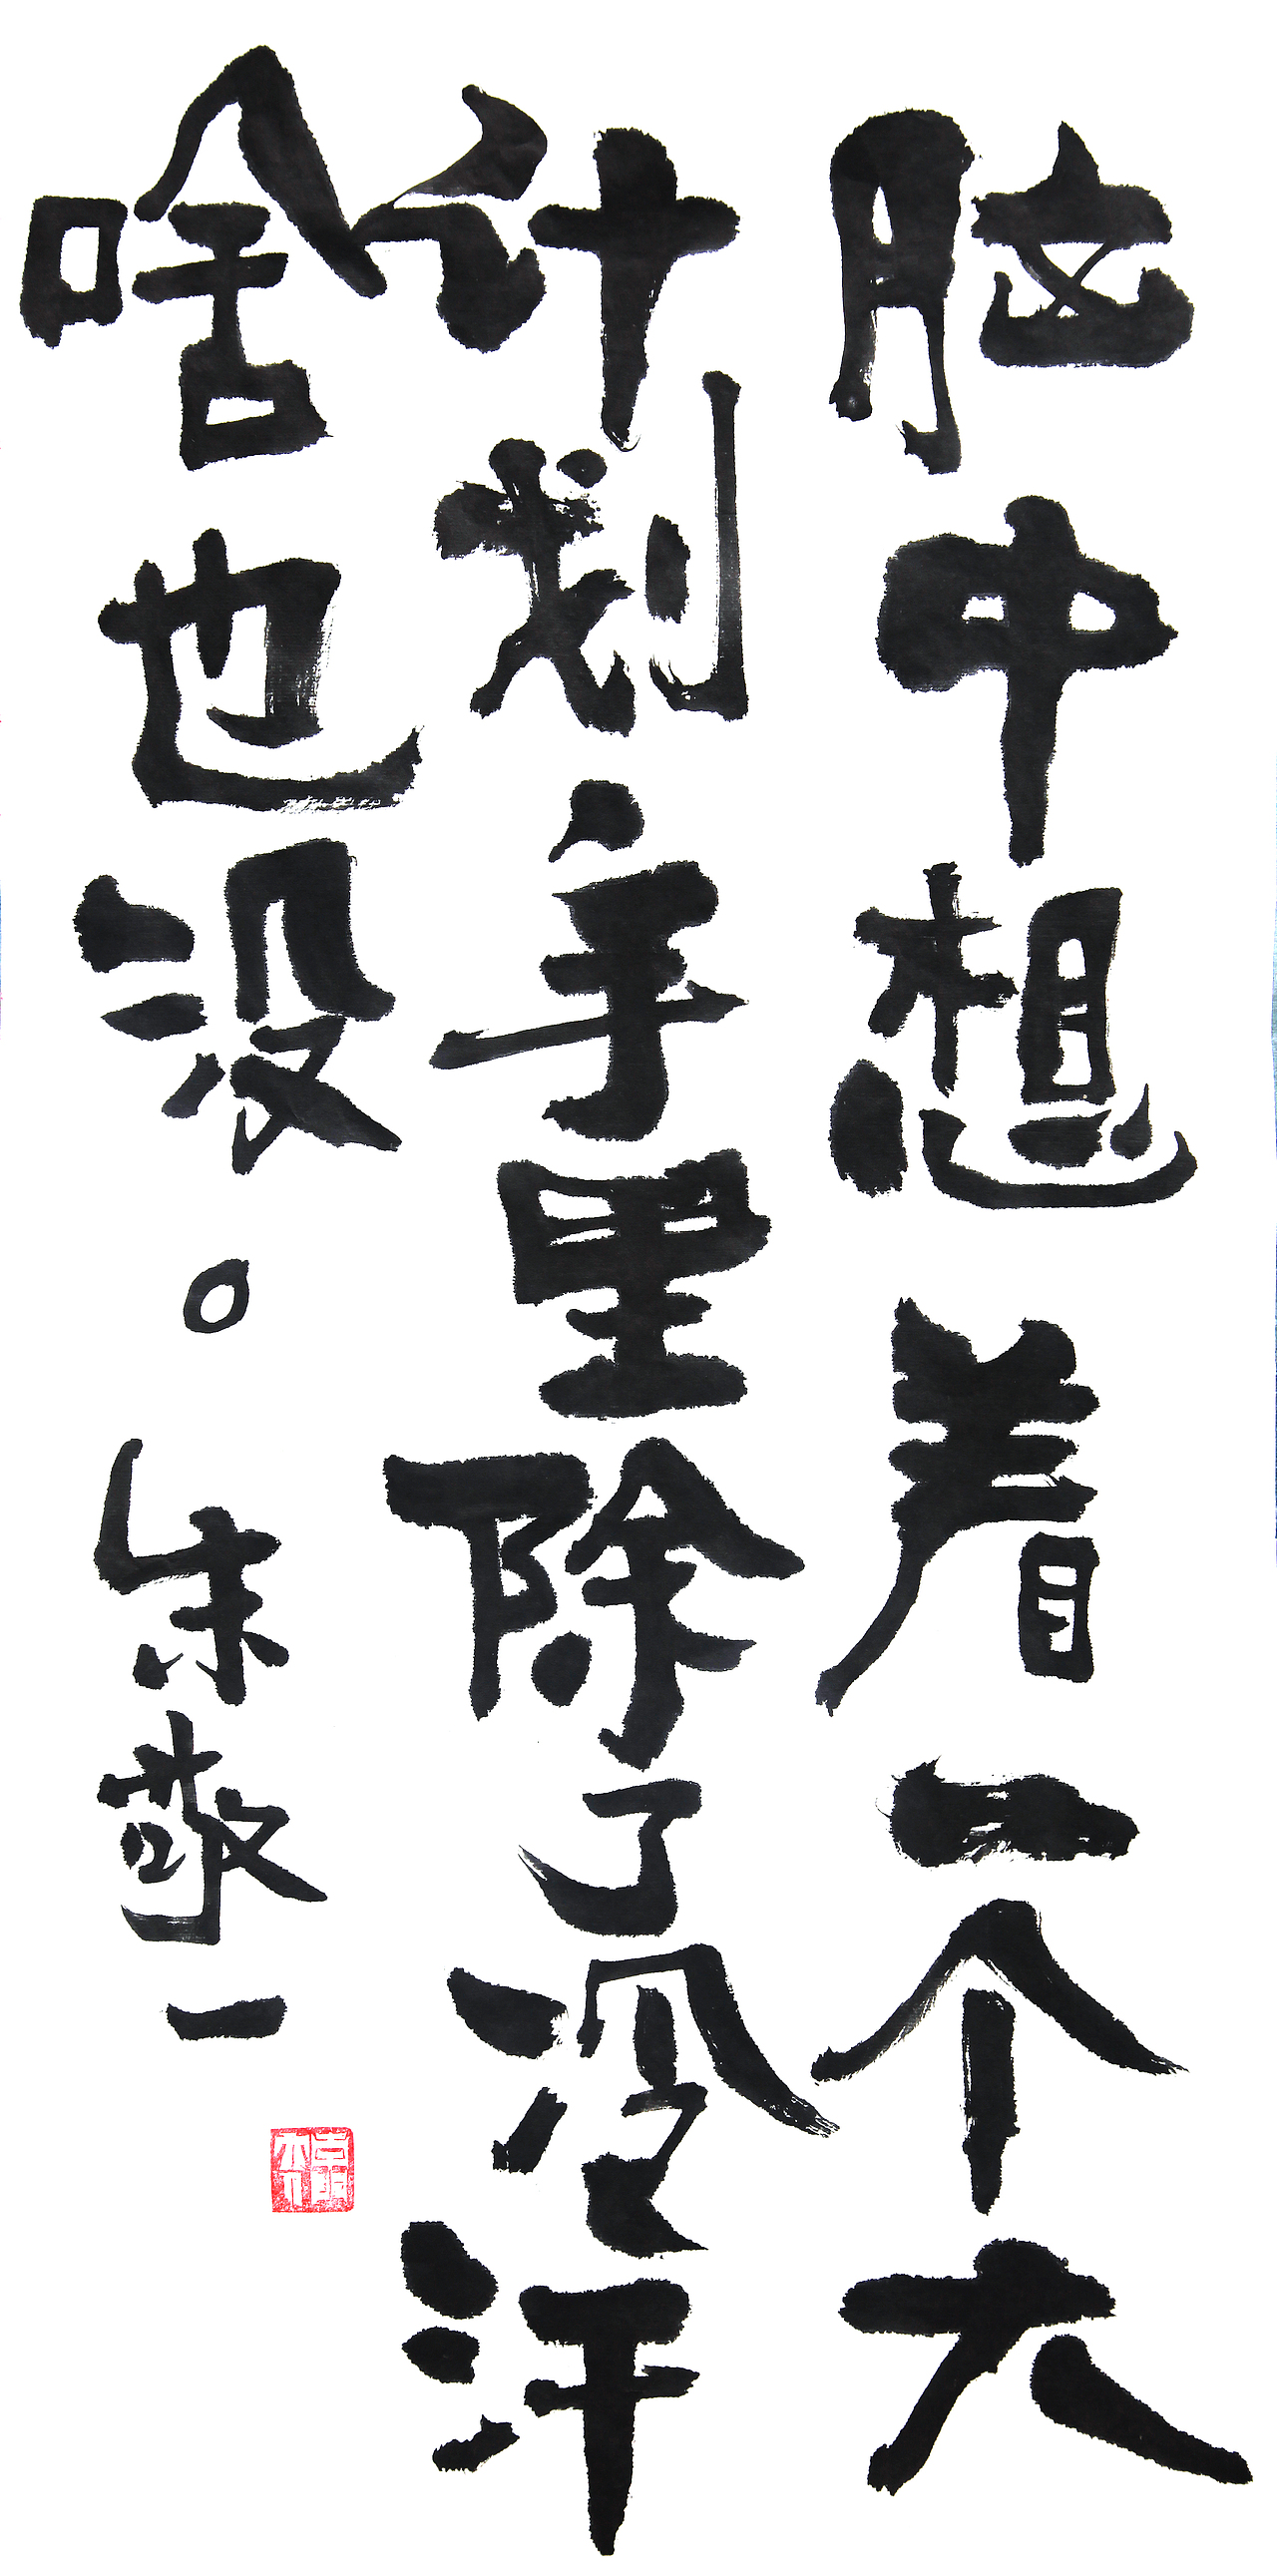 脑中想着一个大
计划手里除了冷汗
啥也没。朱敬一